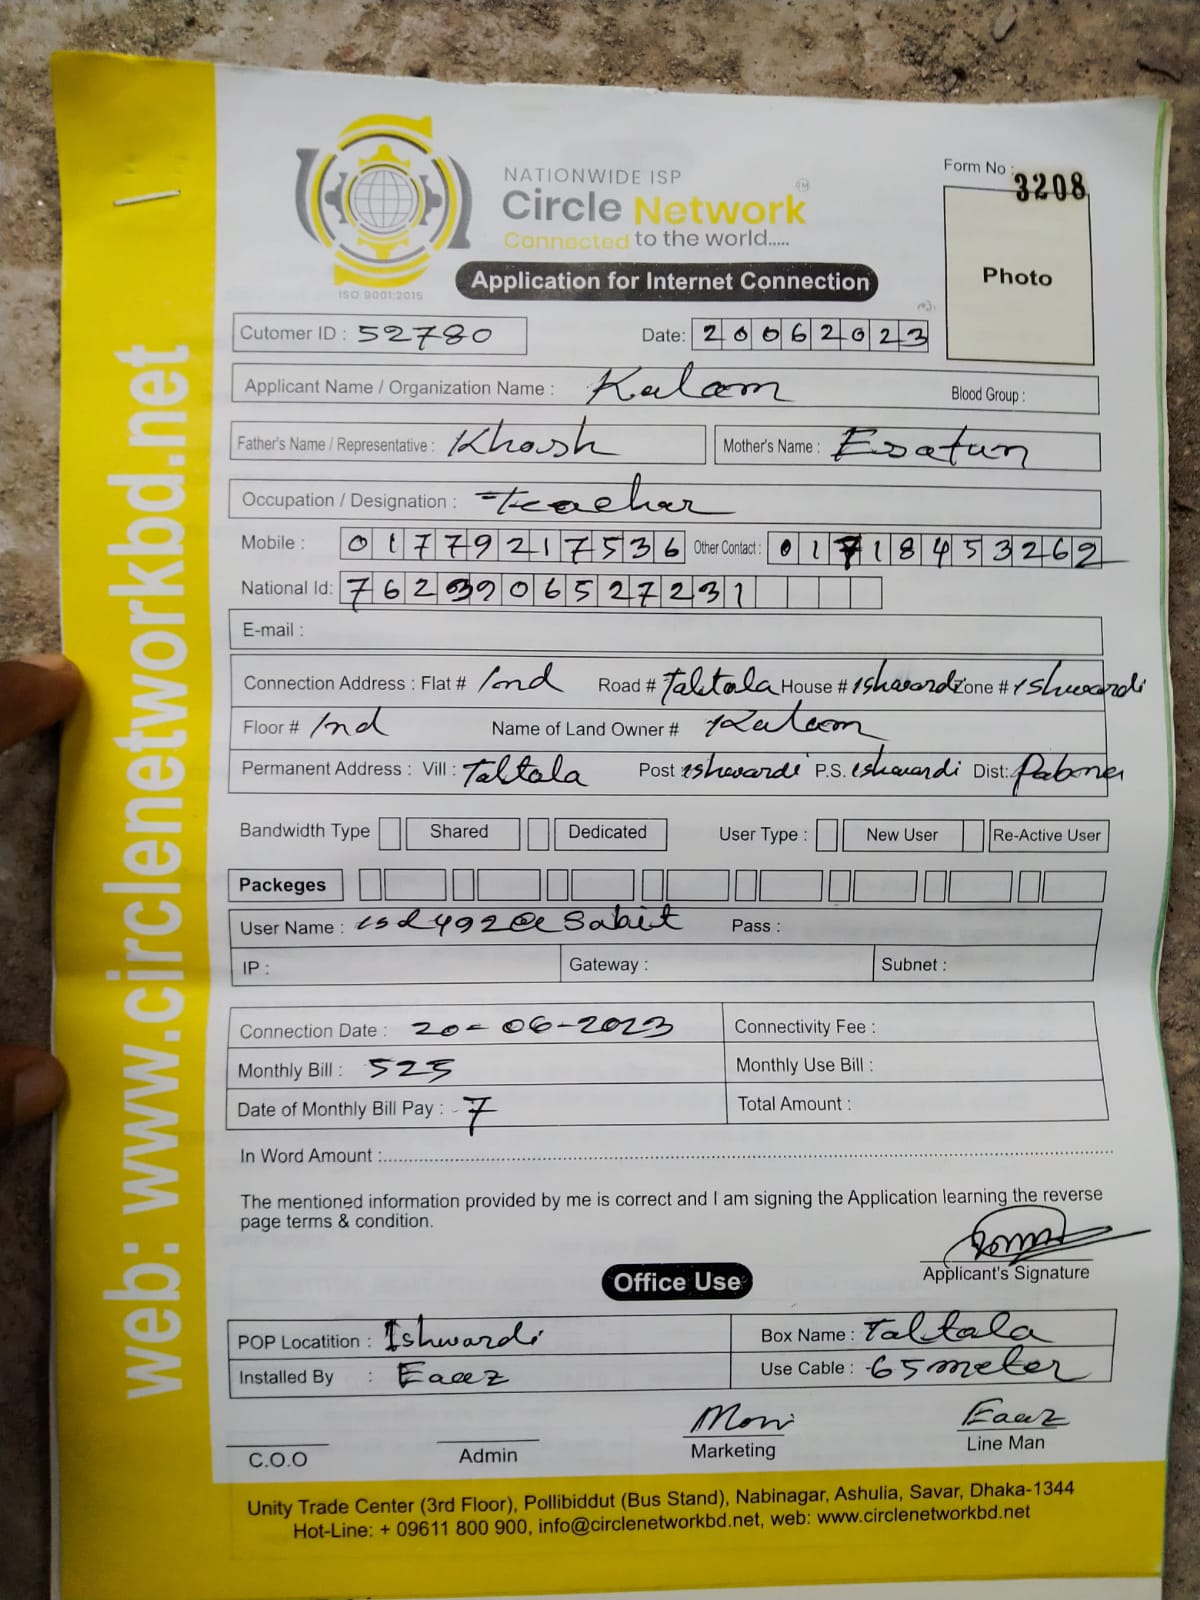 web: www.circlenetworkbd.net
Form No : 3208
NATIONWIDE ISP
Circle Network
Connected to the world.....
ISO 9001:2015
Application for Internet Connection
Photo
Cutomer ID : 52780 Date: 20062023
Applicant Name / Organization Name : Kalam Blood Group :
Father's Name / Representative : Khosh Mother's Name : Esatun
Occupation / Designation : Teachar
Mobile : 01779217536 Other Contact : 01718453262
National Id:
E-mail :
Connection Address : Flat # Ind Road # Taltola House # Ishwardi Zone # Ishwardi
Floor # Ind Name of Land Owner # Kalam
Permanent Address : Vill : Taltala Post Ishwardi P.S. Ishwardi Dist: Pabna
Bandwidth Type Shared Dedicated User Type : New User Re-Active User
Packeges
User Name : isd492@Sabit Pass :
IP : Gateway : Subnet :
Connection Date : 20-06-2023 Connectivity Fee :
Monthly Bill : 525 Monthly Use Bill :
Date of Monthly Bill Pay : 7 Total Amount :
In Word Amount :
The mentioned information provided by me is correct and I am signing the Application learning the reverse
page terms & condition.
Applicant's Signature
Office Use
POP Locatition : Ishwardi Box Name : Taltala
Installed By : Eaaz Use Cable : 65 meter
Moni Eaaz
C.O.O Admin Marketing Line Man
Unity Trade Center (3rd Floor), Pollibiddut (Bus Stand), Nabinagar, Ashulia, Savar, Dhaka-1344
Hot-Line: + 09611 800 900, info@circlenetworkbd.net, web: www.circlenetworkbd.net